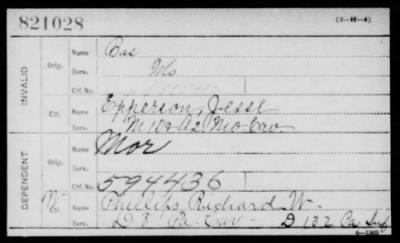 821028
(3-H-4)
INVALID
Orig.
Name Cas
Serv. Mo
Ctf. No.
Ctf.
Name Epperson, Jesse
Serv. M 10 & A 2 Mo Cav
DEPENDENT
Orig.
Name Mor
Serv.
Ctf. No. 594436
Ctf.
Name Phillips, Richard W.
Serv. D 8 Pa. Cav - D 132 Pa. Inf